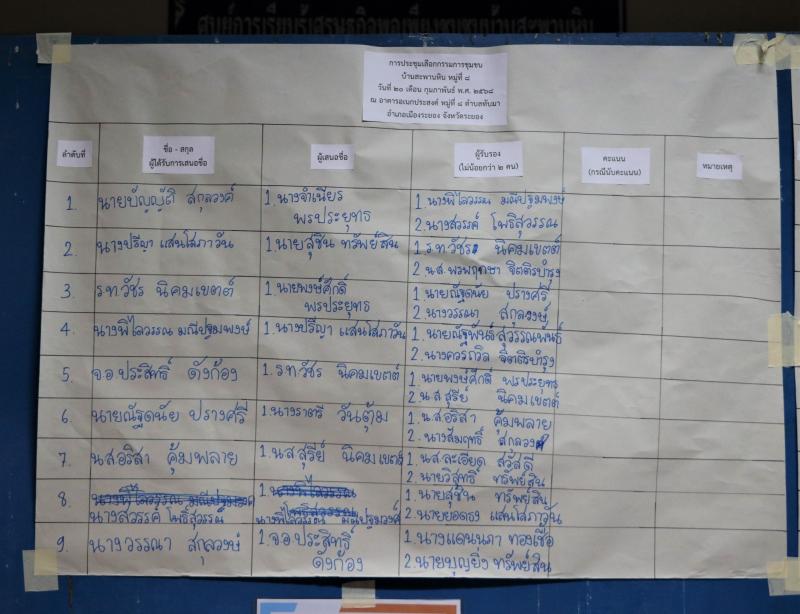 ศูนย์การเรียนรู้เศรษฐกิจพอเพียงชุมชนบ้านสะพานหิน
การประชุมเลือกกรรมการชุมชน
บ้านสะพานหิน หมู่ที่ ๘
วันที่ ๒๐ เดือน กุมภาพันธ์ พ.ศ. ๒๕๖๘
ณ อาคารอเนกประสงค์ หมู่ที่ ๘ ตำบลทับมา
อำเภอเมืองระยอง จังหวัดระยอง
ลำดับที่
ชื่อ - สกุล
ผู้ได้รับการเสนอชื่อ
ผู้เสนอชื่อ
ผู้รับรอง
(ไม่น้อยกว่า ๒ คน)
คะแนน
(กรณีนับคะแนน)
หมายเหตุ
1. นายบัญญัติ สกุลวงศ์
1. นางจำเนียร
พรประยุทธ
1. นางพิไลวรรณ มณีปฐมพงษ์
2. นางสวรรค์ โพธิสุวรรณ
2. นางปรีญา แสนโสภาวัน
1. นายสุชิน ทรัพย์สิน
1. ร.ท.วัชร นิคมเขตต์
2. น.ส.พรพฤกษา จิตติรบำรุง
3. ร.ท.วัชร นิคมเขตต์
1. นายพงษ์ศักดิ์
พรประยุทธ
1. นายณัฐดนัย ปรางศรี
2. นางวรรณา สกุลวงษ์
4. นางพิไลวรรณ มณีปฐมพงษ์
1. นางปรีญา แสนโสภาวัน
1. นายณัฐพันธ์ สุวรรณพันธ์
2. นางควรถวิล จิตติรบำรุง
5. จ.อ.ประสิทธิ์ ดังก้อง
1. ร.ท.วัชร นิคมเขตต์
1. นายพงษ์ศักดิ์ พรประยุทธ
2. น.ส.สุรีย์ นิคมเขตต์
6. นายณัฐดนัย ปรางศรี
1. นางราตรี วันตุ้ม
1. น.ส.อริสา คุ้มพลาย
2. นางสัมฤทธิ์ สกุลวงศ์
7. น.ส.อริสา คุ้มพลาย
1. น.ส.สุรีย์ นิคมเขตต์
1. น.ส.ละเอียด สวัสดี
2. นายวิสุทธิ์ ทรัพย์สิน
8. นางพิไลวรรณ มณีปฐมพงษ์
นางสวรรค์ โพธิ์สุวรรณ
1. นางพิไลวรรณ มณีปฐมวงศ์
1. นายสุชิน ทรัพย์สิน
2. นายยอดธง แสนโสภาวัน
9. นางวรรณา สกุลวงษ์
1. จ.อ.ประสิทธิ์
ดังก้อง
1. นางแดนนภา ทองเชื้อ
2. นายบุญยิ่ง ทรัพย์สิน